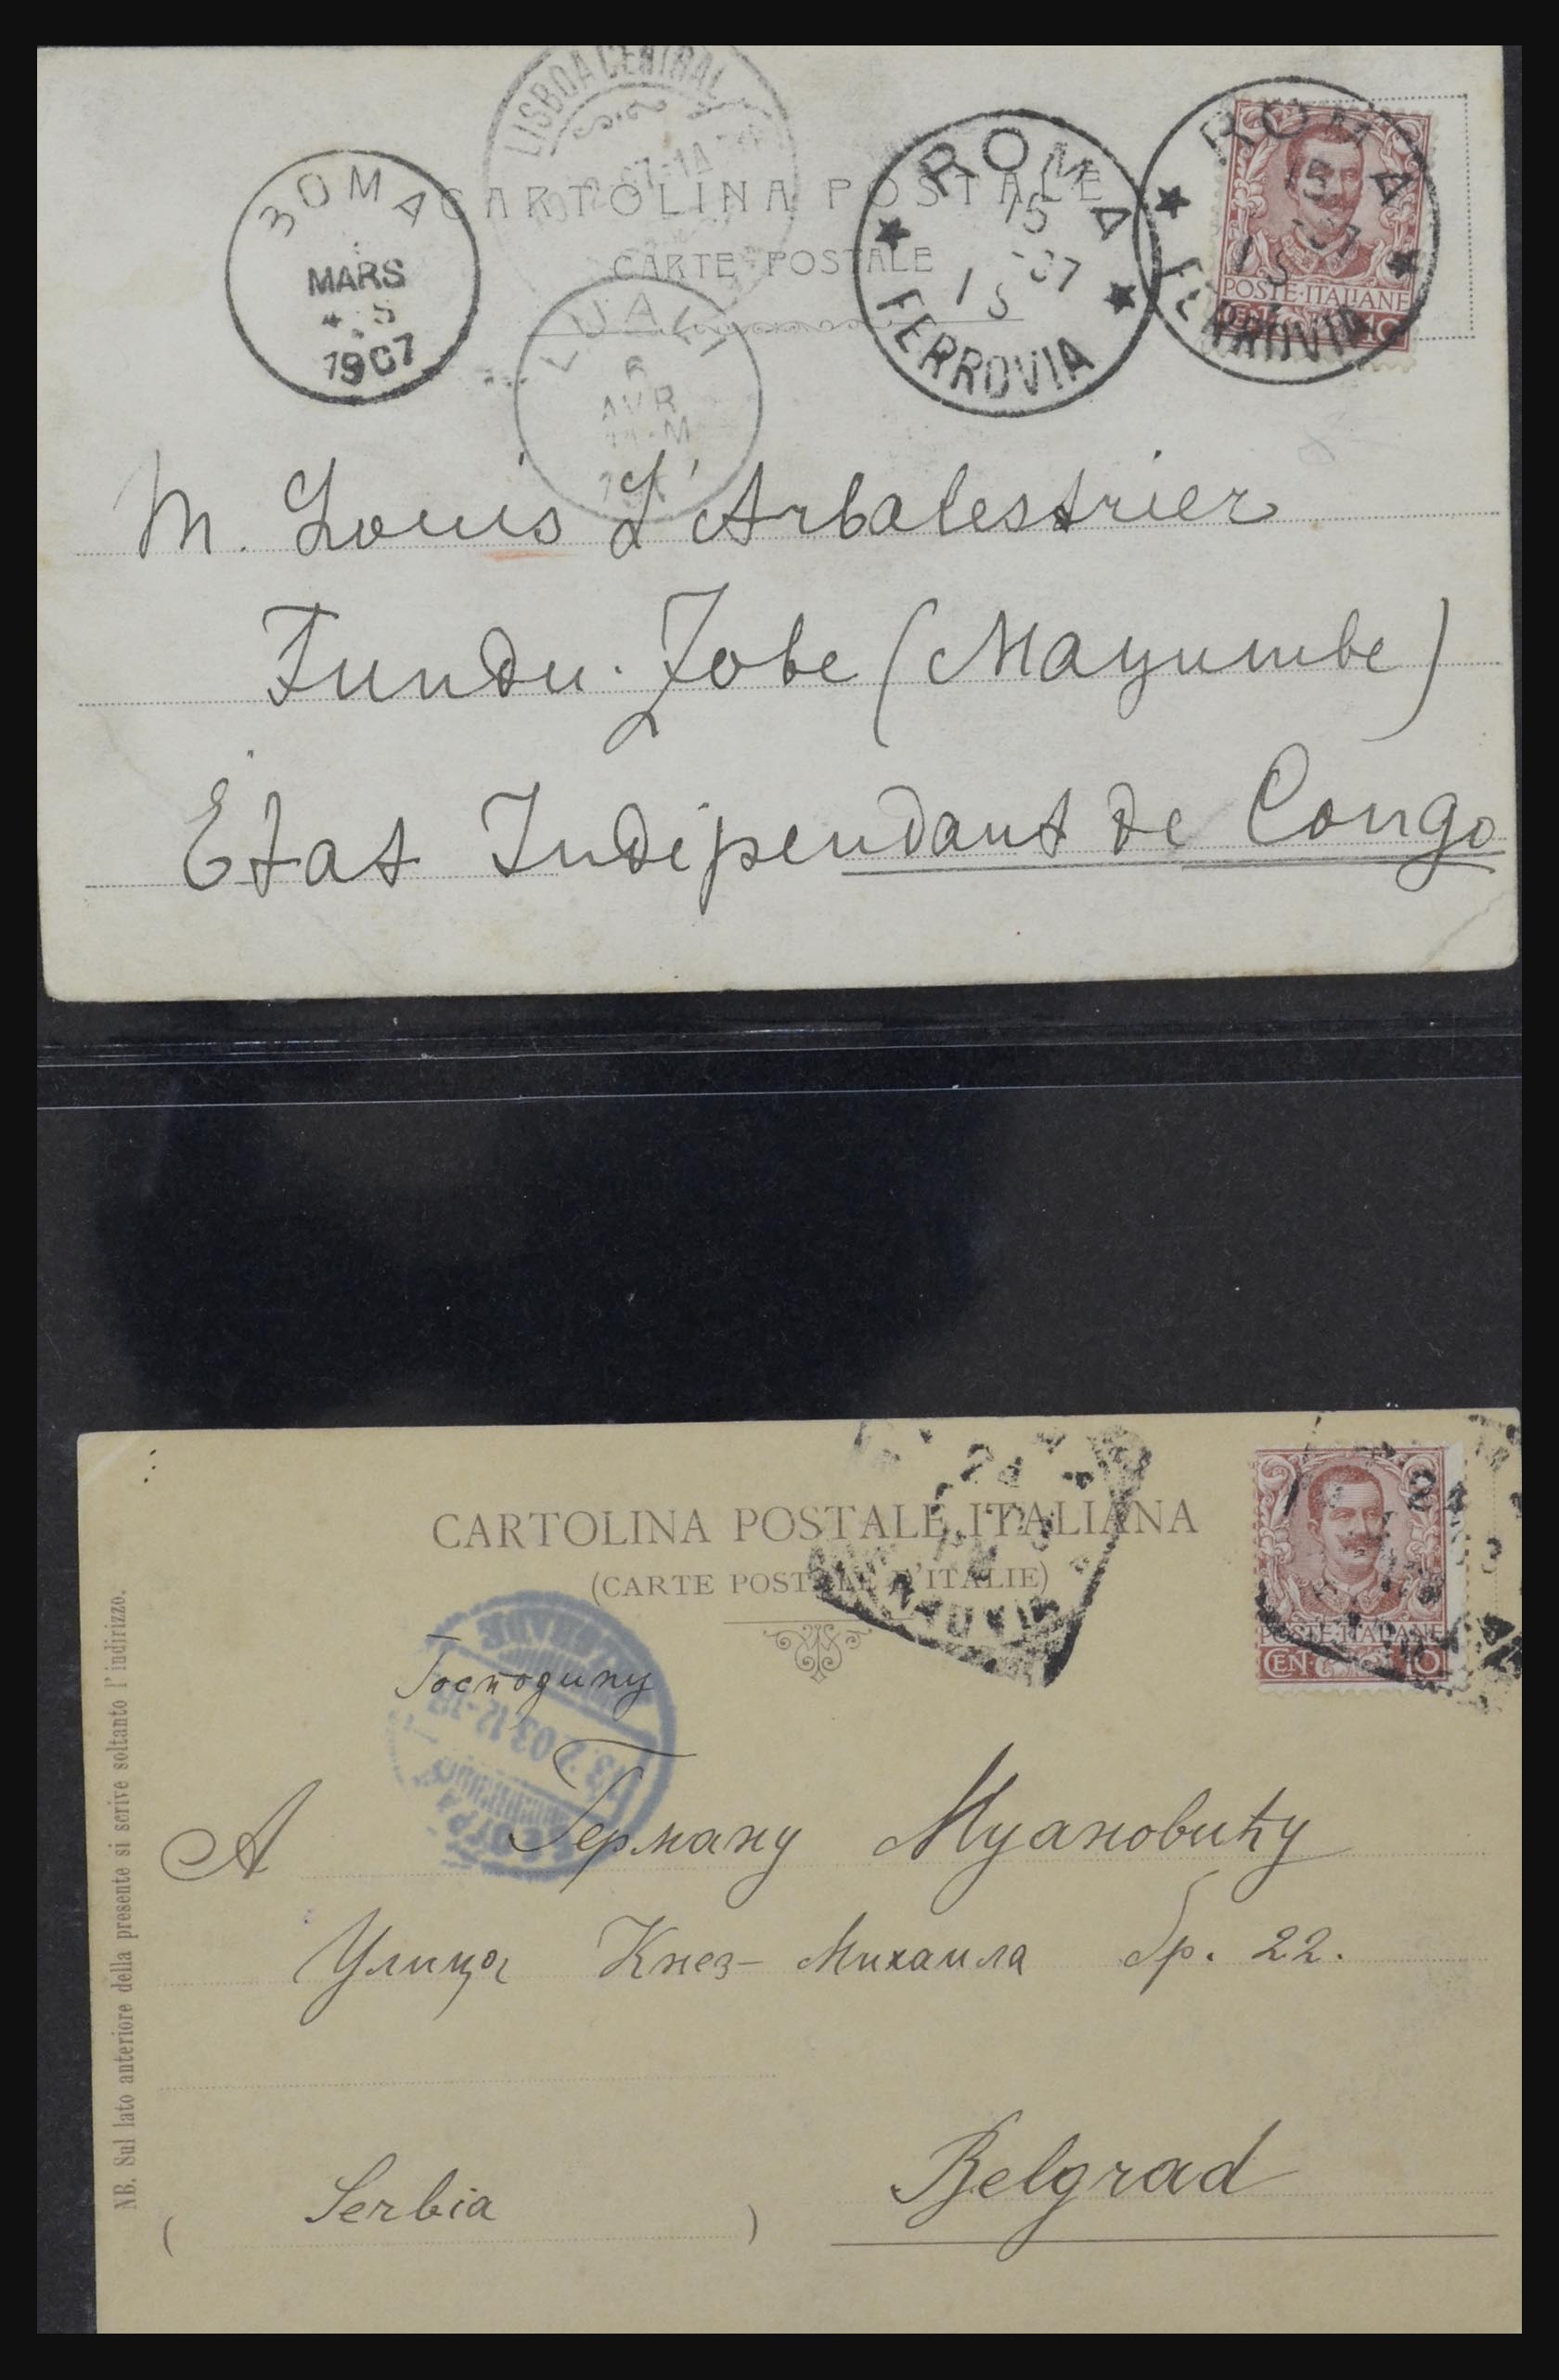 LISBOA CENTRAL
CARTOLINA POSTALE
CARTE POSTALE
BOMA
MARS
1907
LUALI
6
AVR
ROMA
15
07
FERROVIA
ROMA
15
07
FERROVIA
POSTE·ITALIANE
M. Louis L'Arbalestrier
Fundu-Zobe (Mayumbe)
Etat Indipendant de Congo
CARTOLINA POSTALE ITALIANA
(CARTE POSTALE D'ITALIE)
24
POSTE·ITALIANE
CENTESIMI 10
Господину
A Герману Муановићу
Улица Кнез-Михаила бр. 22.
Belgrad
(Serbia)
NB. Sul lato anteriore della presente si scrive soltanto l'indirizzo.